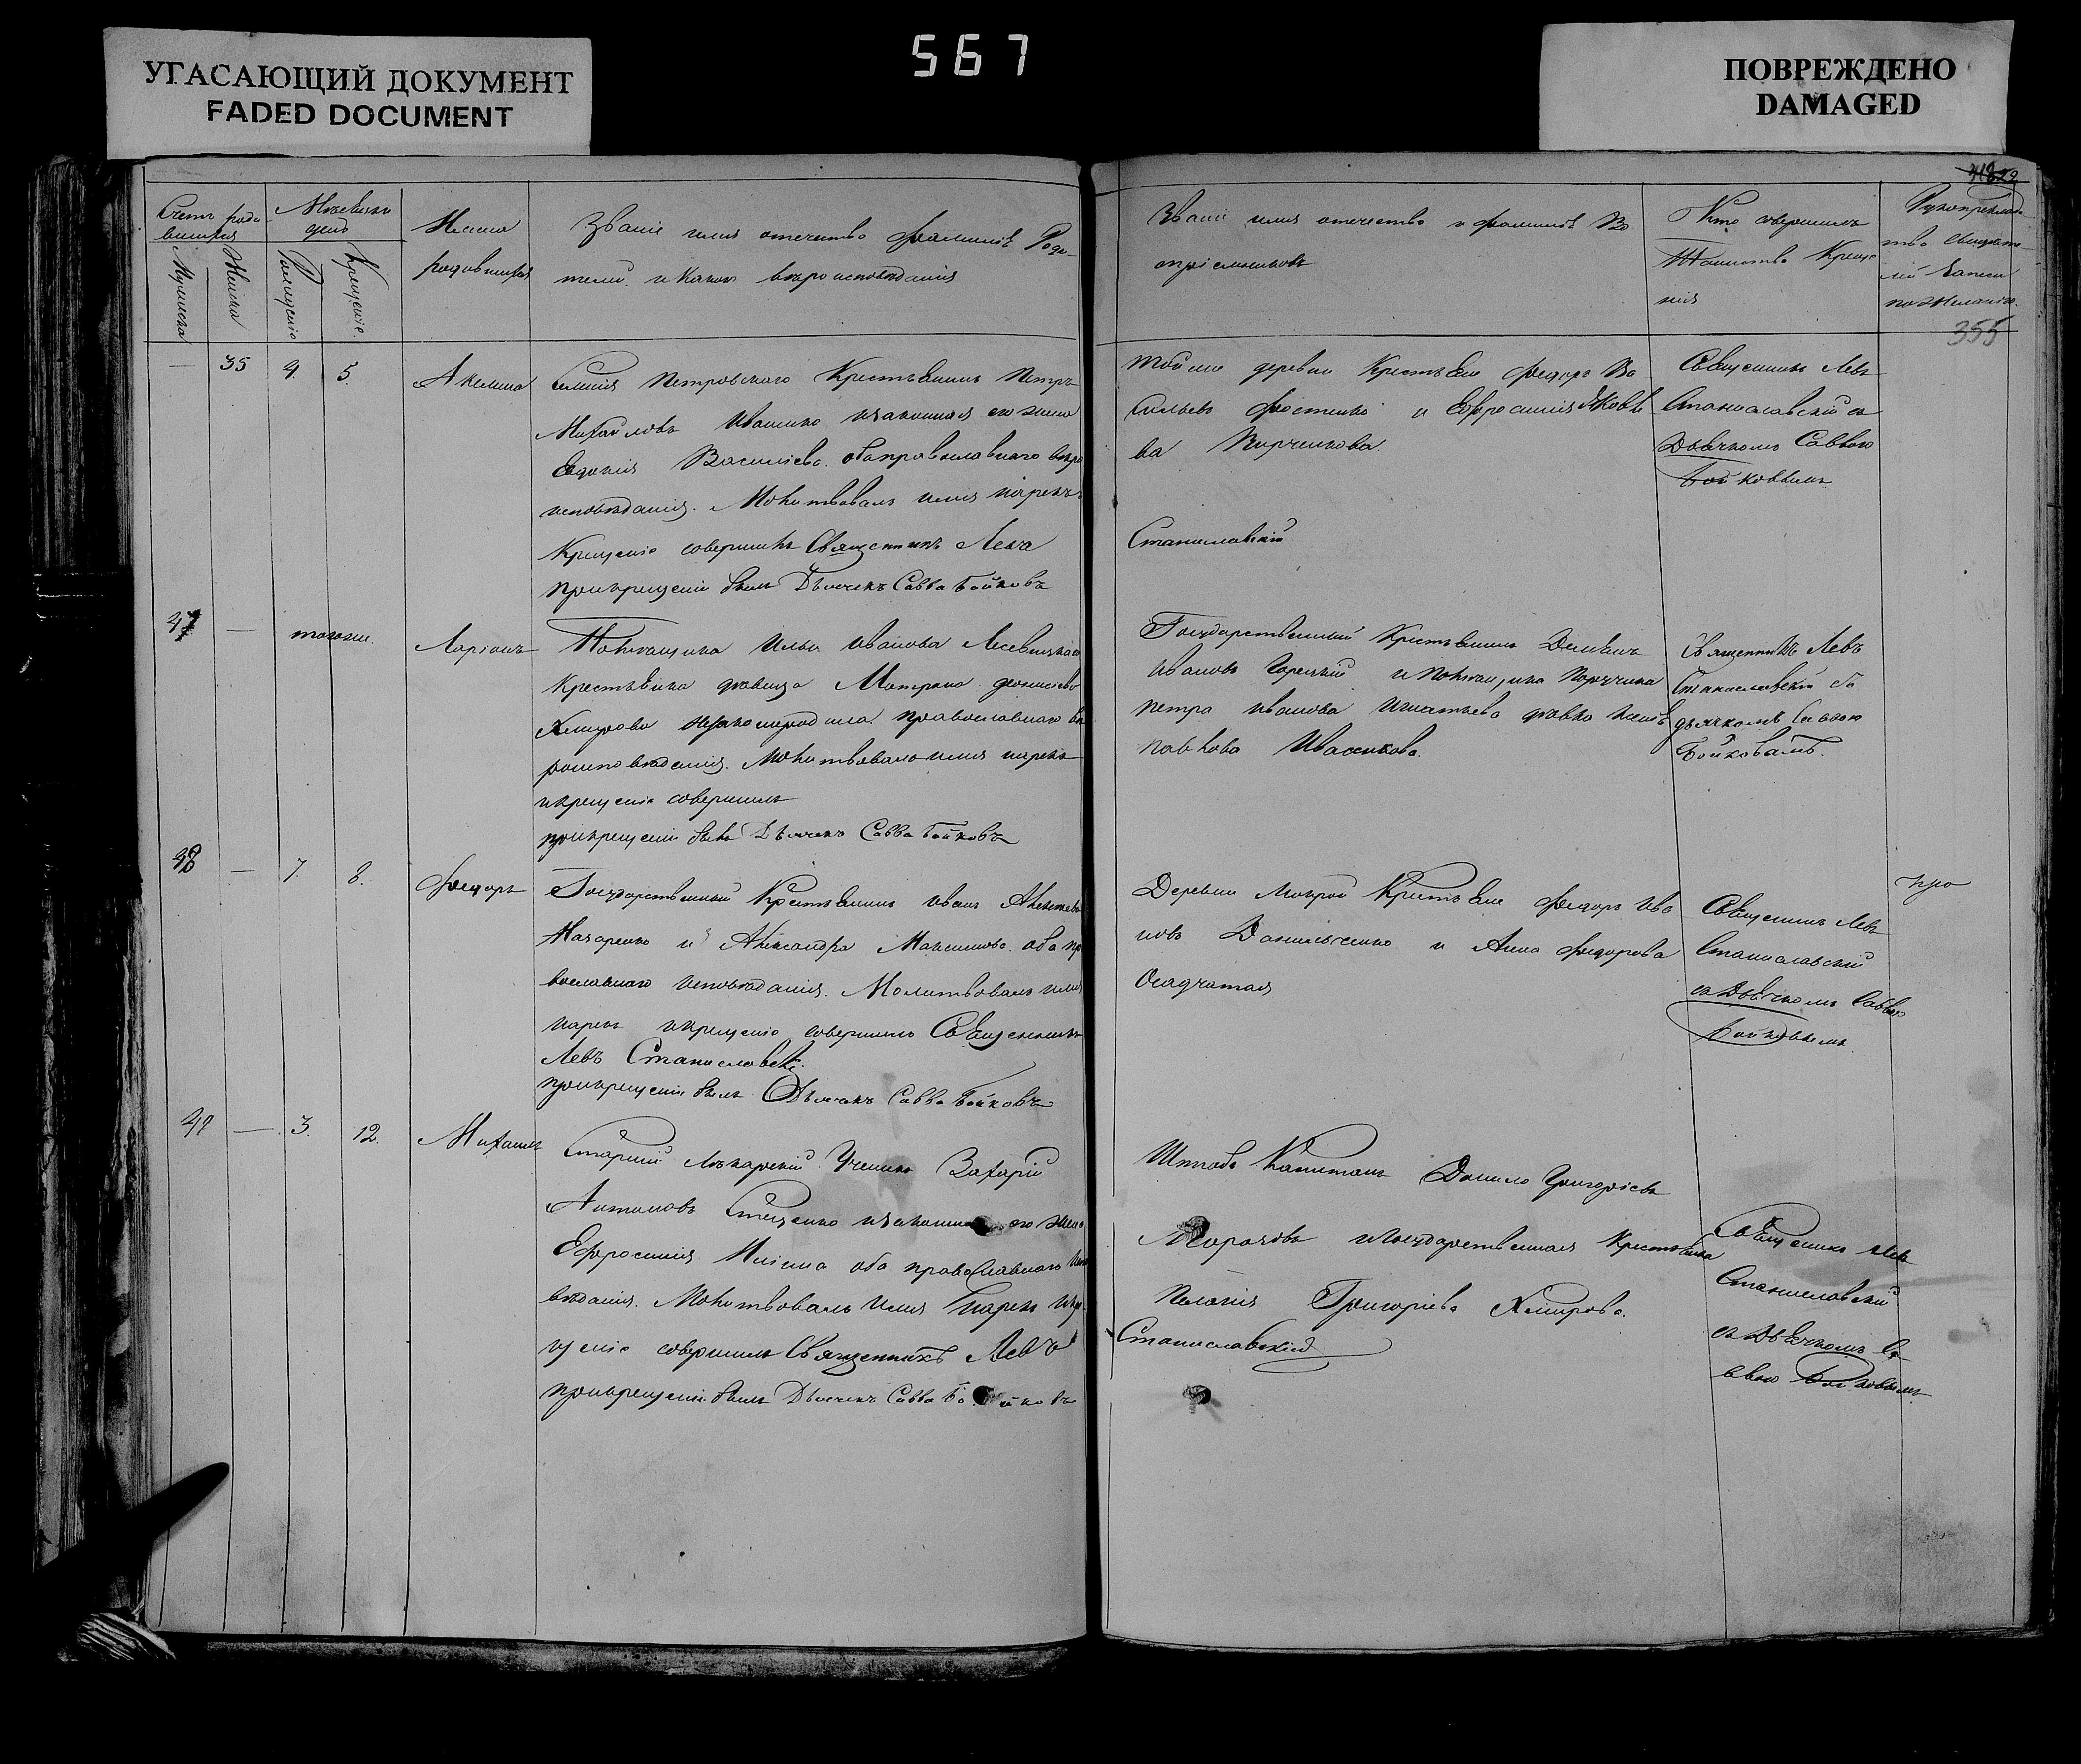 УГАСАЮЩИЙ ДОКУМЕНТ
FADED DOCUMENT
567
ПОВРЕЖДЕНО
DAMAGED
Счетъ роди-
вшихся
Мужеска
Женска
Мѣсяцъ и
день
Рожденіе
Крещеніе.
Имена
родившихся
Званіе имя отечество фамилія Роди-
телей. и какого вѣроисповѣданія
Званіе имя отечество и фамилія Во
пріемниковъ
Кто совершилъ
Таинство Креще
нія
Рукоприклад-
ство свидѣте-
лей записи
по желанію.
355
— 35 4. 5. Акелина
Селенія Петровского Крестьянинъ Петръ
Михайловъ Ивашико изаконная его жена
Евдокія Васильева. оба православного вѣро
исповѣданія. Молитвовалъ имя нарекъ
Крещеніе совершилъ Священникъ Левъ
прикрещеніи былъ Дьячекъ Савва Бойковъ
Тойже деревни Крестьяне Федоръ Ва
сильевъ Фостенко и Евфросинія Яковле
ва Кирченкова.
Станиславскій
Священникъ Левъ
Станиславскій съ
Дьячкомъ Саввою
Бойковымъ
47 — тогоже. Ларіонъ
Помѣщика Ильи Иванова Лесевицкаго
Крестьянка дѣвица Матрона Денисіева
Хмирова незаконнородила. православного вѣ
роисповѣданія. Молитвовалъ имя нарекъ
икрещеніе совершилъ
прикрещеніи былъ Дьячекъ Савва Бойковъ
Государственный Крестьянинъ Демьянъ
Ивановъ Горецкій и помѣщика Поручика
Петра Иванова Игнатьева дѣвка
Павлова Ивасикова.
Священникъ Левъ
Станиславскій съ
дьячкомъ Саввою
Бойковымъ.
48 — 7. 8. Федоръ
Государственный Крестьянинъ Иванъ Алексѣевъ
Назаренко и Александра Максимова. оба пра
вославного исповѣданія. Молитвовалъ имя
нарекъ икрещеніе совершилъ Священникъ
Левъ Станиславскій.
прикрещеніи былъ Дьячекъ Савва Бойковъ
Деревни Мокрой Крестьяне Федоръ Ива
новъ Данильченко и Анна Федорова
Осадчатая
Священникъ Левъ
Станиславскій
съ Дьячкомъ Саввою
Бойковымъ
49 — 3. 12. Михаилъ
Старшій Лѣкарскій Ученикъ Захарій
Антоновъ Стеценко изаконная его жена
Ефросинія Ильина оба православного испо
вѣданія. Молитвовалъ имя нарекъ икре-
щеніе совершилъ Священникъ Левъ
прикрещеніи былъ Дьячекъ Савва Бойковъ
Штабъ Капитанъ Данило Григоріевъ
Морозовъ игосударственная Крестьянка
Пелагія Григоріева Хмирова.
Станиславскій
Священникъ Левъ
Станиславскій
съ Дьячкомъ Са-
ввою Бойковымъ